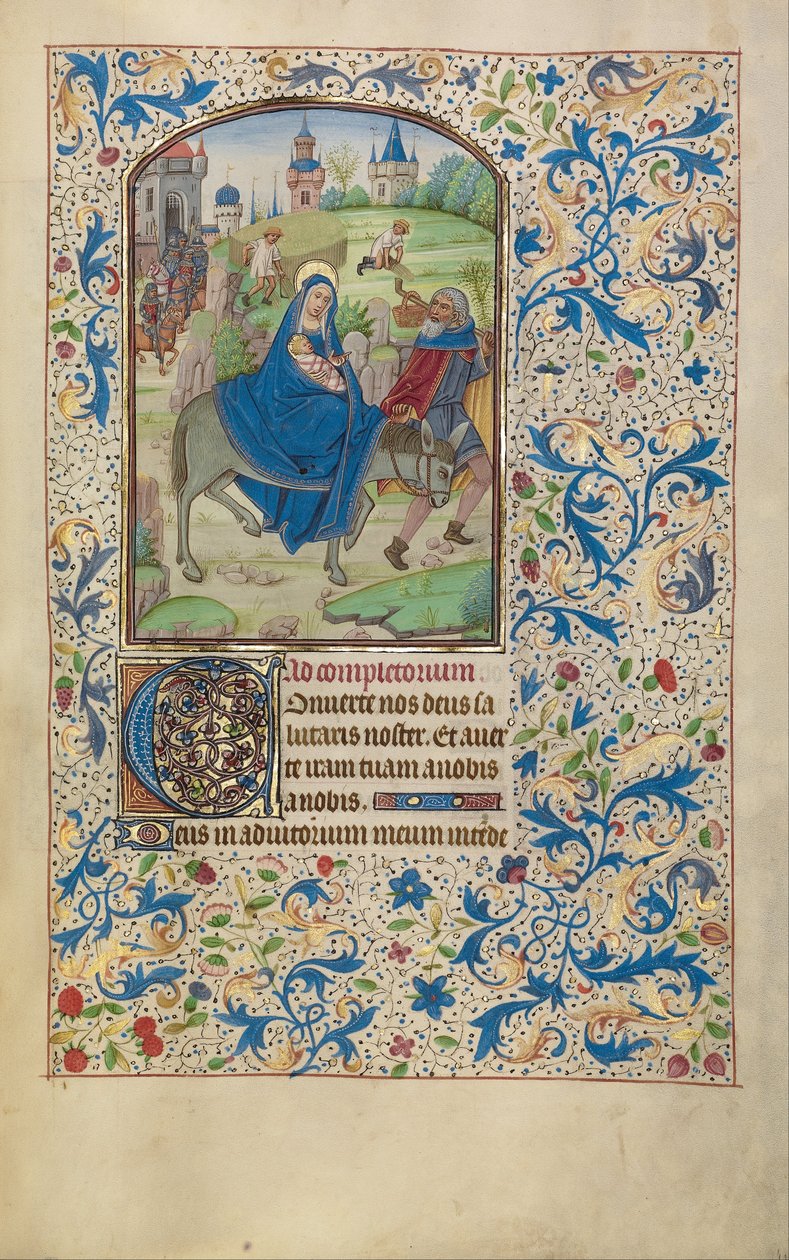 Ad completorium
Conuerte nos deus sa
lutaris noster. Et auer
te iram tuam anobis
anobis.
Deus in adiutorium meum intēde